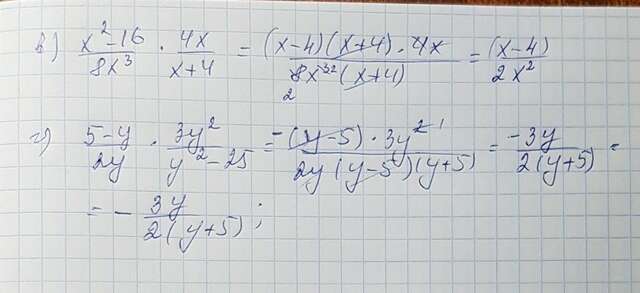 в) x²-16/8x³ · 4x/x+4 = (x-4)(x+4)·4x/8x³²(x+4) 2 = (x-4)/2x²
г) 5-y/2y · 3y²/y²-25 = -(y-5)·3y²¹/2y(y-5)(y+5) = -3y/2(y+5) =
= - 3y/2(y+5);